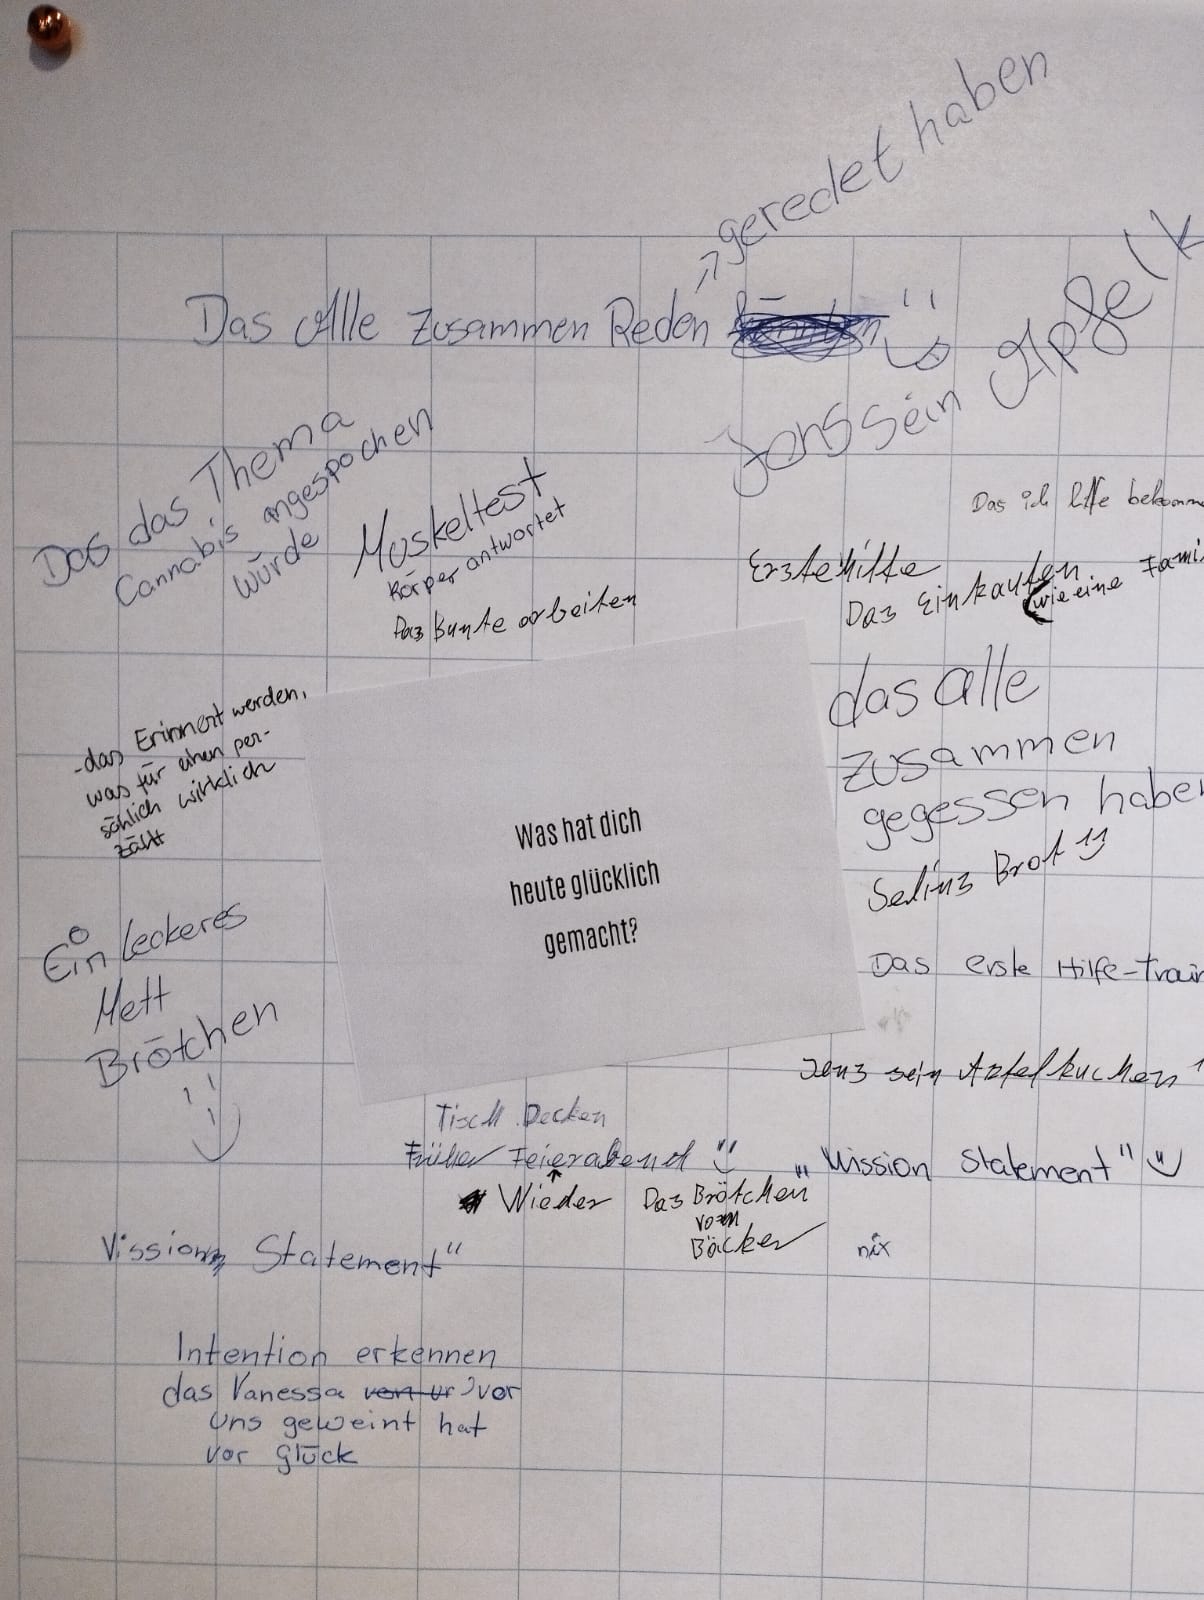 geredet haben
Das Alle Zusammen Reden
Jens sein Apfelk
Das das Thema
Cannabis angespochen
würde
Muskeltest
Körper antwortet
Das Bunte arbeiten
Das ich bekomm
Erste Hilfe
Das Einkaufen
wie eine Fami
das alle
zusammen
gegessen haben
Selins Brot
Das erste Hilfe-Train
Jens sein Apfelkuchen
-das Erinnert werden,
was für einen per-
söhlich wirklich
zählt
Ein leckeres
Mett
Brötchen
Was hat dich
heute glücklich
gemacht?
Tisch Decken
Früher Feierabend
Wieder
Das Brötchen
vom
Bäcker
"Mission Statement"
nix
Vission Statement"
Intention erkennen
das Vanessa von ur vor
uns geweint hat
vor Glück